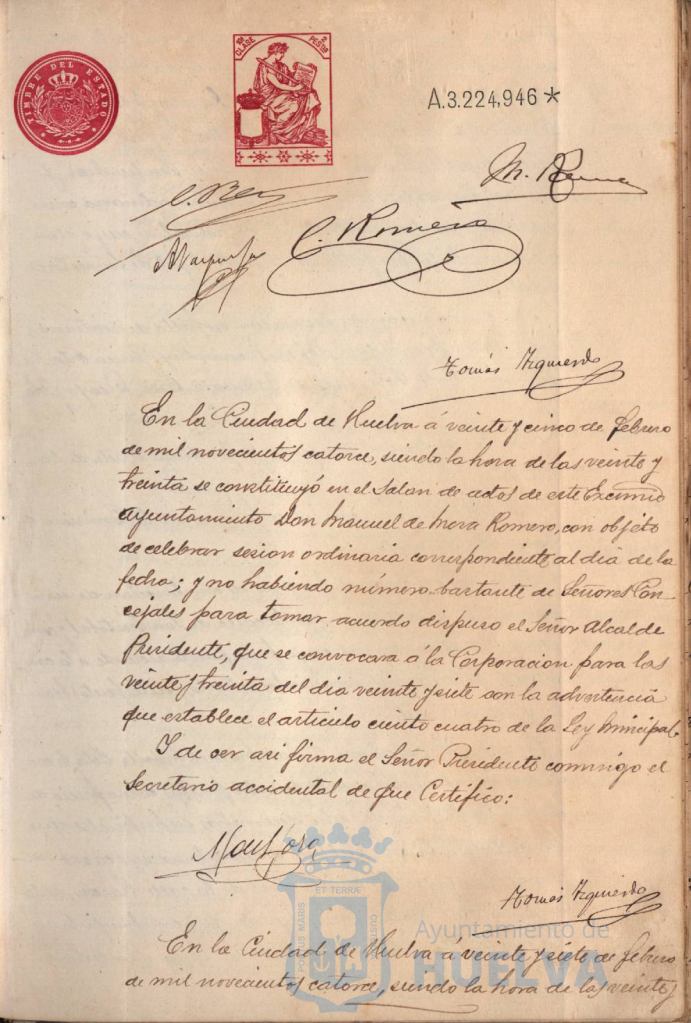 TIMBRE DEL ESTADO
10ª CLASE 2 PESTAS
A.3.224,946*
M.
C.
C. Romero
Tomás Izquierdo
En la Ciudad de Huelva á veinte y cinco de febrero
de mil novecientos catorce, siendo la hora de las veinte y
treinta se constituyó en el Salon de actos de este Excmo
Ayuntamiento Don Manuel de Mora Romero, con objeto
de celebrar sesion ordinaria correspondiente al dia de la
fecha; y no habiendo número bastante de Señores Con-
cejales para tomar acuerdo dispuso el Señor Alcalde
Presidente, que se convocara á la Corporacion para las
veinte y treinta del dia veinte y siete con la advertencia
que establece el articulo ciento cuatro de la Ley Municipal.
Y de ser asi firma el Señor Presidente conmigo el
Secretario accidental de que Certifico:
M de Mora
Tomás Izquierdo
PORTUS MARIS ET TERRÆ CUSTODIA
Ayuntamiento de
HUELVA
En la Ciudad de Huelva á veinte y siete de febrero
de mil novecientos catorce, siendo la hora de las veinte y